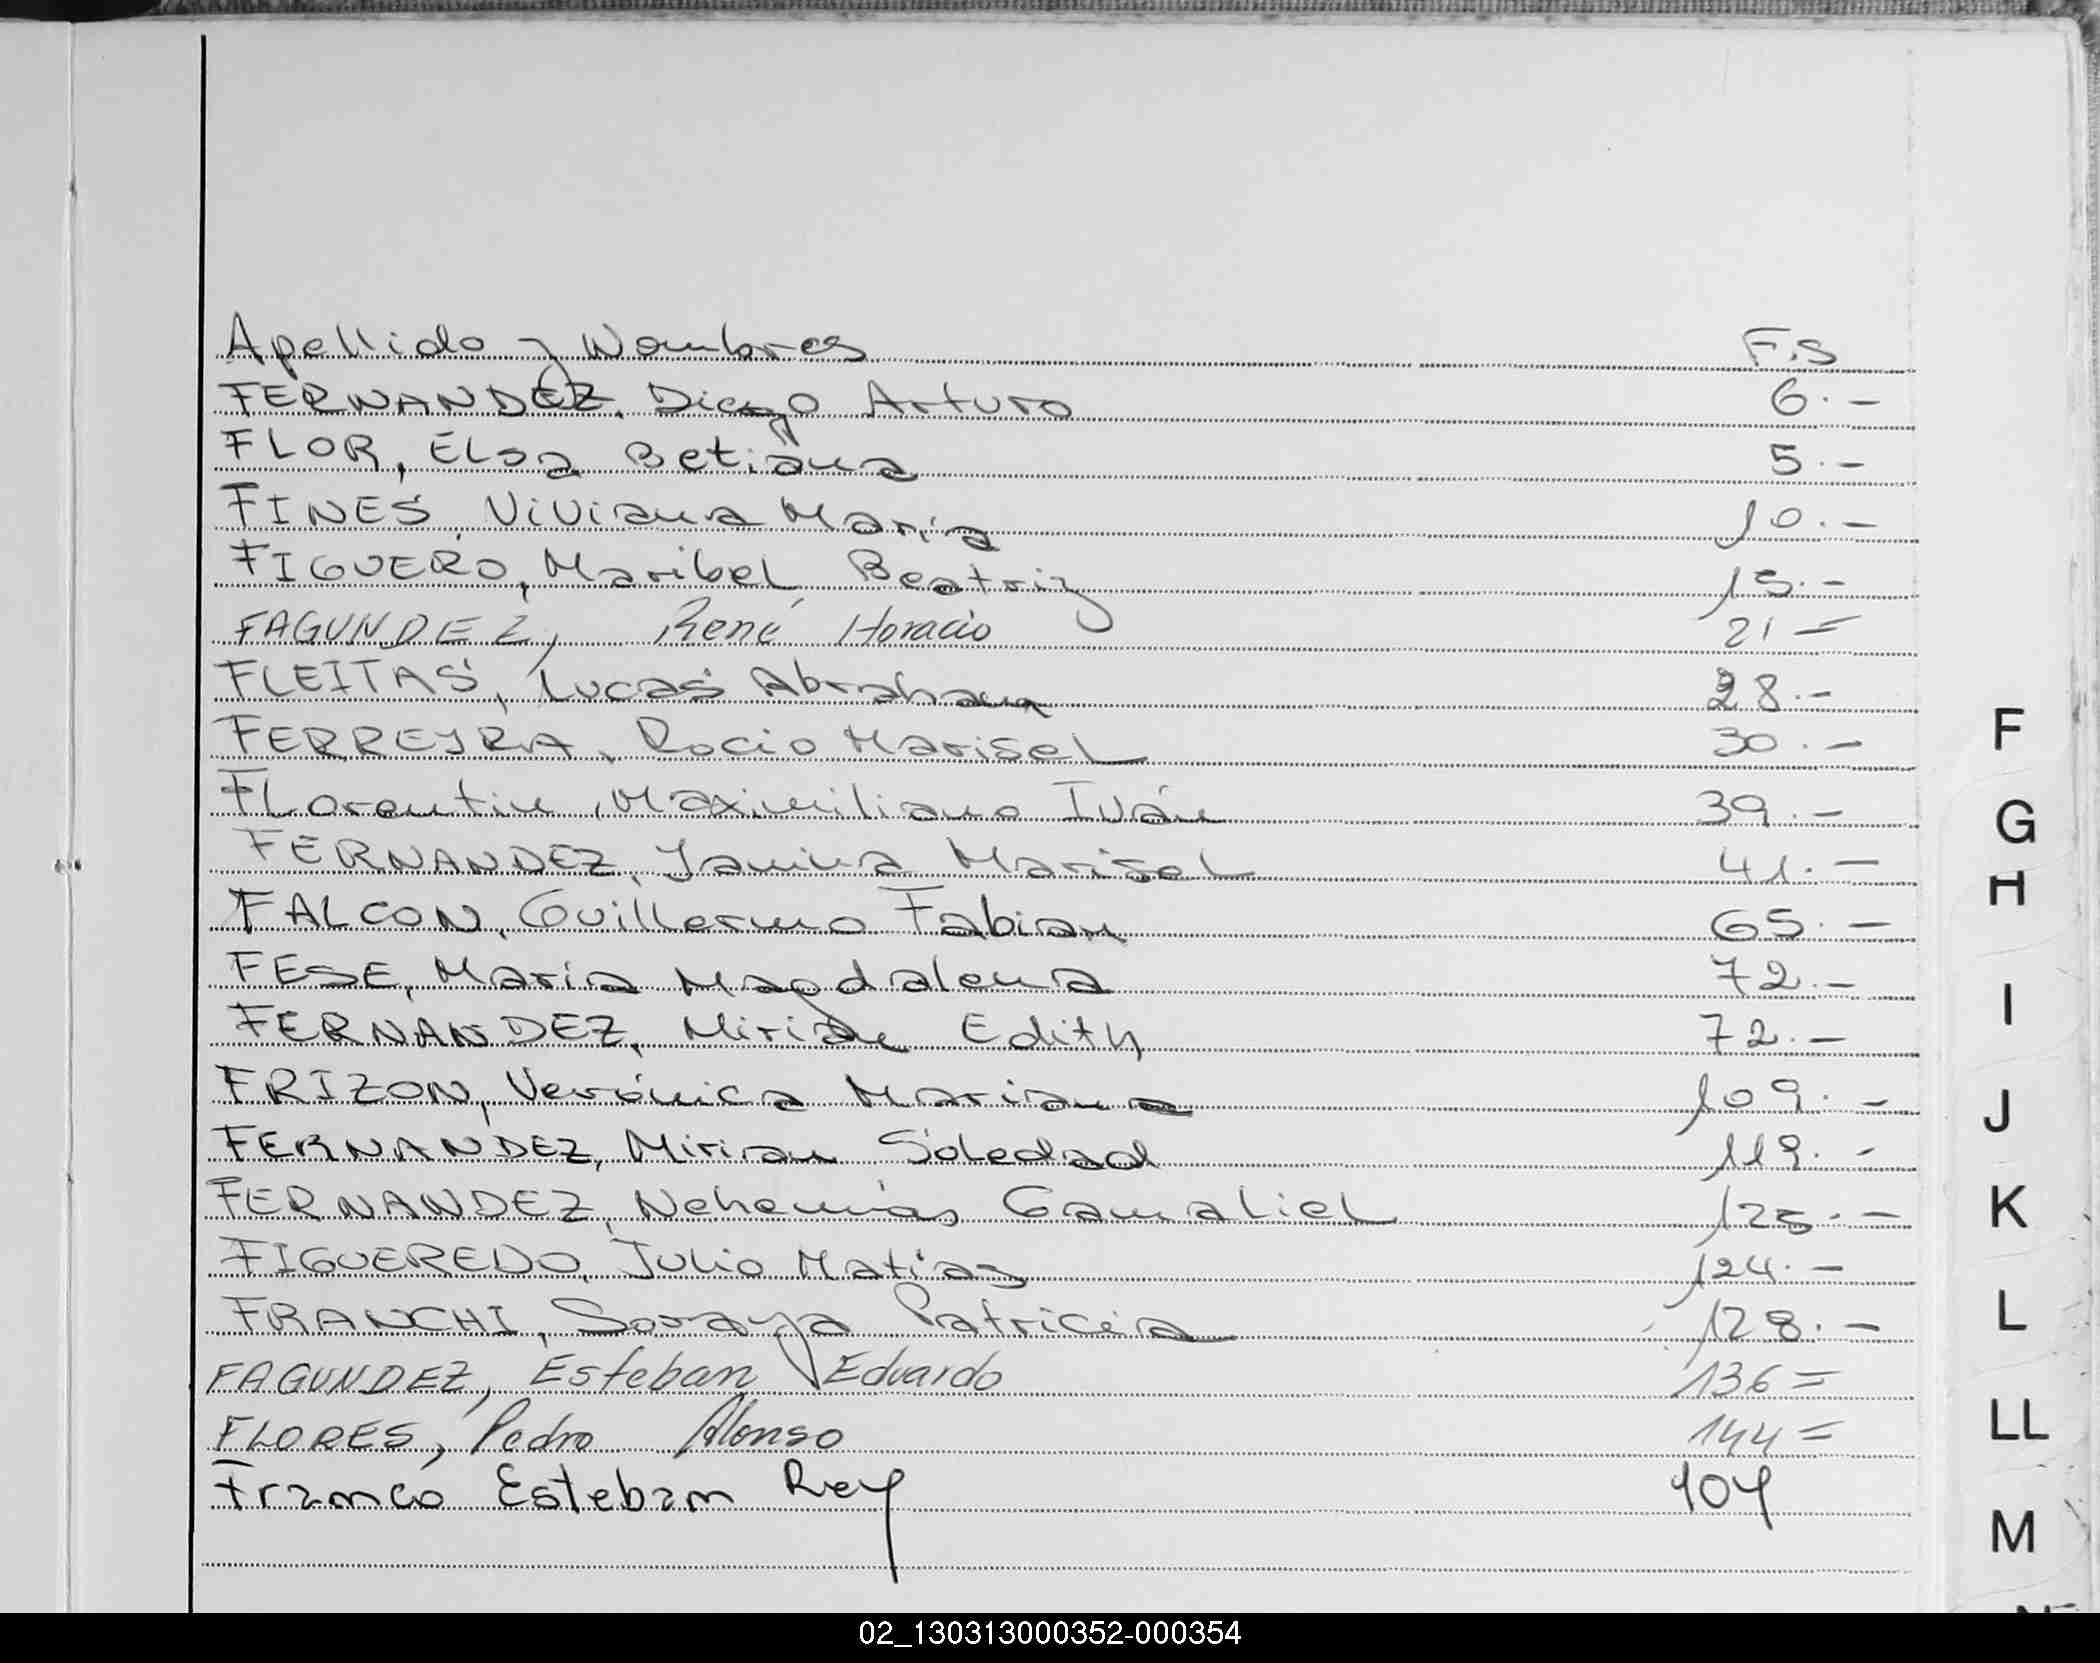 Apellido y Nombres F.S
FERNANDEZ, Diego Arturo 6.-
FLOR, Elsa Betiana 5.-
FINES, Viviana María 10.-
FIGUERO, Maribel Beatriz 15.-
FAGUNDEZ, René Horacio 21=
FLEITAS, Lucas Abraham 28.-
FERREYRA, Rocio Marisel 30.-
Florentin, Maximiliano Iván 39.-
FERNANDEZ, Yanina Marisel 41.-
FALCON, Guillermo Fabian 65.-
FESE, María Magdalena 72.-
FERNANDEZ, Mirian Edith 72.-
FRIZON, Verónica Mariana 109.-
FERNANDEZ, Mirian Soledad 119.-
FERNANDEZ, Nehemías Gamaliel 125.-
FIGUEREDO, Julio Matías 124.-
FRANCHI, Soraya Patricia 128.-
FAGUNDEZ, Esteban Eduardo 136=
FLORES, Pedro Alonso 144=
Franco Esteban Rey 104
F
G
H
I
J
K
L
LL
M
02_130313000352-000354